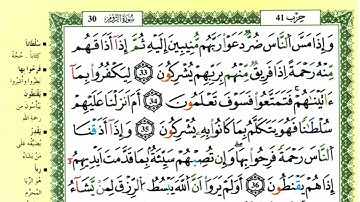 حِزْب 41
سُورَةُ الرُّومِ 30
وَإِذَا مَسَّ ٱلنَّاسَ ضُرٌّ دَعَوْا۟ رَبَّهُم مُّنِيبِينَ إِلَيْهِ ثُمَّ إِذَآ أَذَاقَهُم
مِّنْهُ رَحْمَةً إِذَا فَرِيقٌ مِّنْهُم بِرَبِّهِمْ يُشْرِكُونَ 33 لِيَكْفُرُوا۟ بِمَآ
ءَاتَيْنَٰهُمْ فَتَمَتَّعُوا۟ فَسَوْفَ تَعْلَمُونَ 34 أَمْ أَنزَلْنَا عَلَيْهِمْ
سُلْطَٰنًا فَهُوَ يَتَكَلَّمُ بِمَا كَانُوا۟ بِهِۦ يُشْرِكُونَ 35 وَإِذَآ أَذَقْنَا
ٱلنَّاسَ رَحْمَةً فَرِحُوا۟ بِهَا وَإِن تُصِبْهُمْ سَيِّئَةٌۢ بِمَا قَدَّمَتْ أَيْدِيهِمْ
إِذَا هُمْ يَقْنَطُونَ 36 أَوَلَمْ يَرَوْا۟ أَنَّ ٱللَّهَ يَبْسُطُ ٱلرِّزْقَ لِمَن يَشَآءُ
سُلْطَاناً
كتاباً .. حُجَّةً
فَرِحُوا بِهَا
يَقْنَطُونَ
رَحْمَةِ اللهِ
يَقْدِرُ